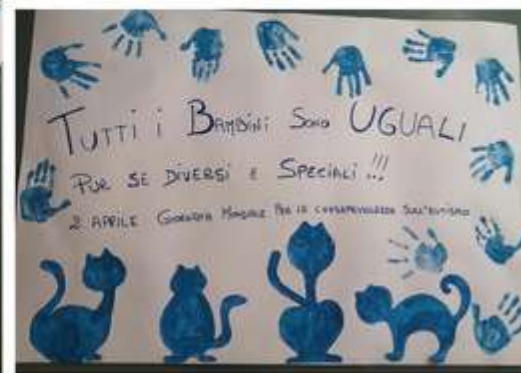 TUTTI i BAMBINI SONO UGUALI
PUR SE DIVERSI E SPECIALI !!!
2 APRILE GIORNATA MONDIALE PER LA CONSAPEVOLEZZA SULL'AUTISMO